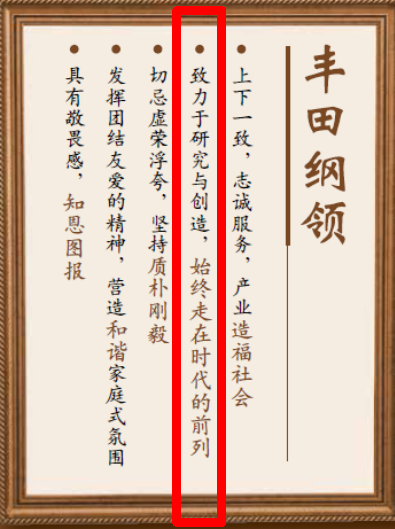 丰田纲领
上下一致，志诚服务，产业造福社会
致力于研究与创造，始终走在时代的前列
切忌虚荣浮夸，坚持质朴刚毅
发挥团结友爱的精神，营造和谐家庭式氛围
具有敬畏感，知恩图报